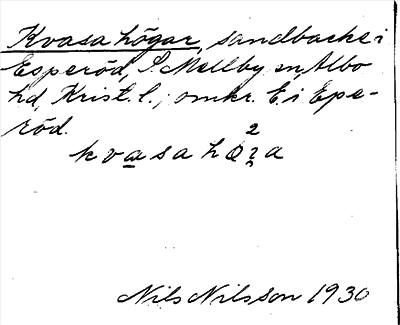 Kvasa högar, sandbacke i
Esperöd, S. Mellby sn, Albo
hd, Krist. l.; omkr. E i Espe-
röd.
Nils Nilsson 1930